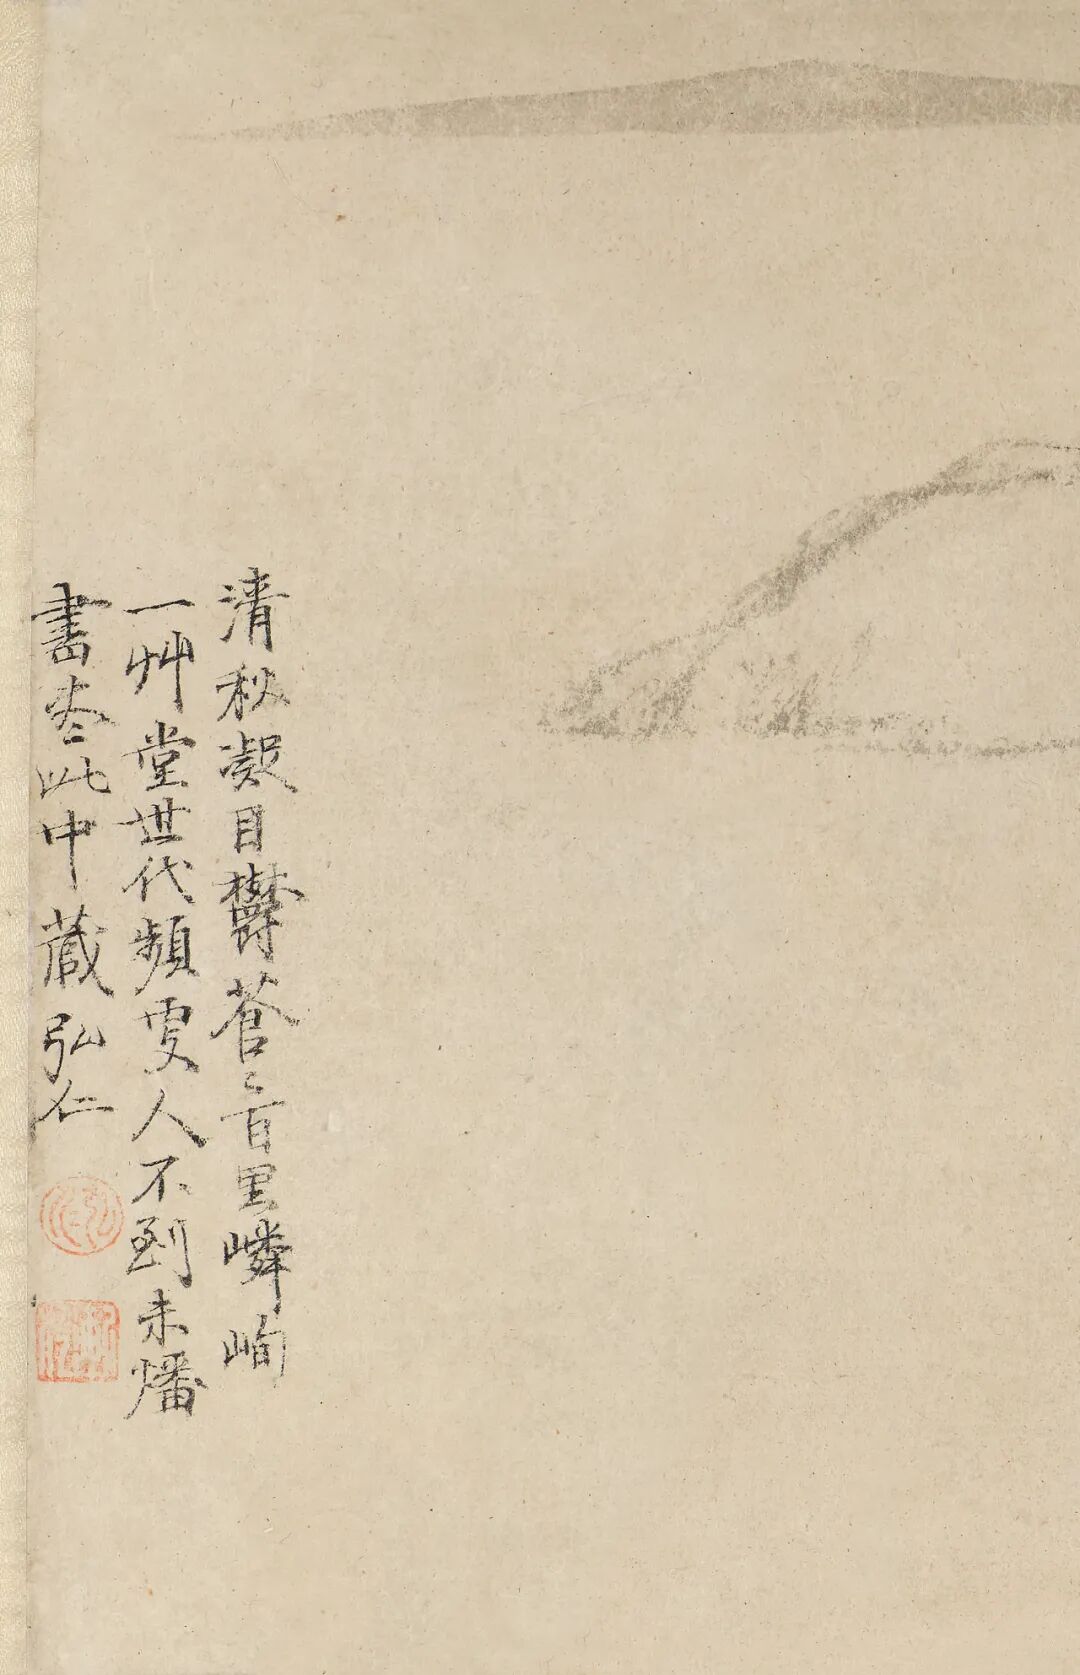 清秋凝目欝蒼〻百里嶙峋
一艸堂世代頻㪅人不到未燔
書卷此中藏弘仁
弘仁